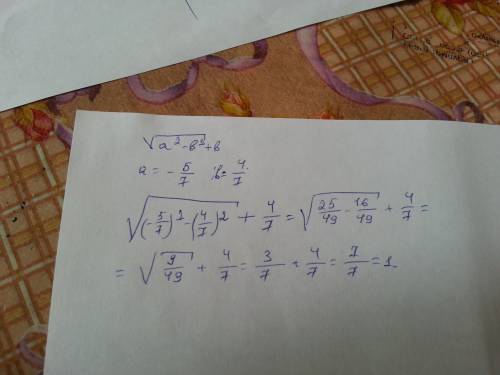 √(a² - b²) + b
a = - 5/7 ; b = 4/7
√((-5/7)² - (4/7)²) + 4/7 = √(25/49 - 16/49) + 4/7 =
= √(9/49) + 4/7 = 3/7 + 4/7 = 7/7 = 1.